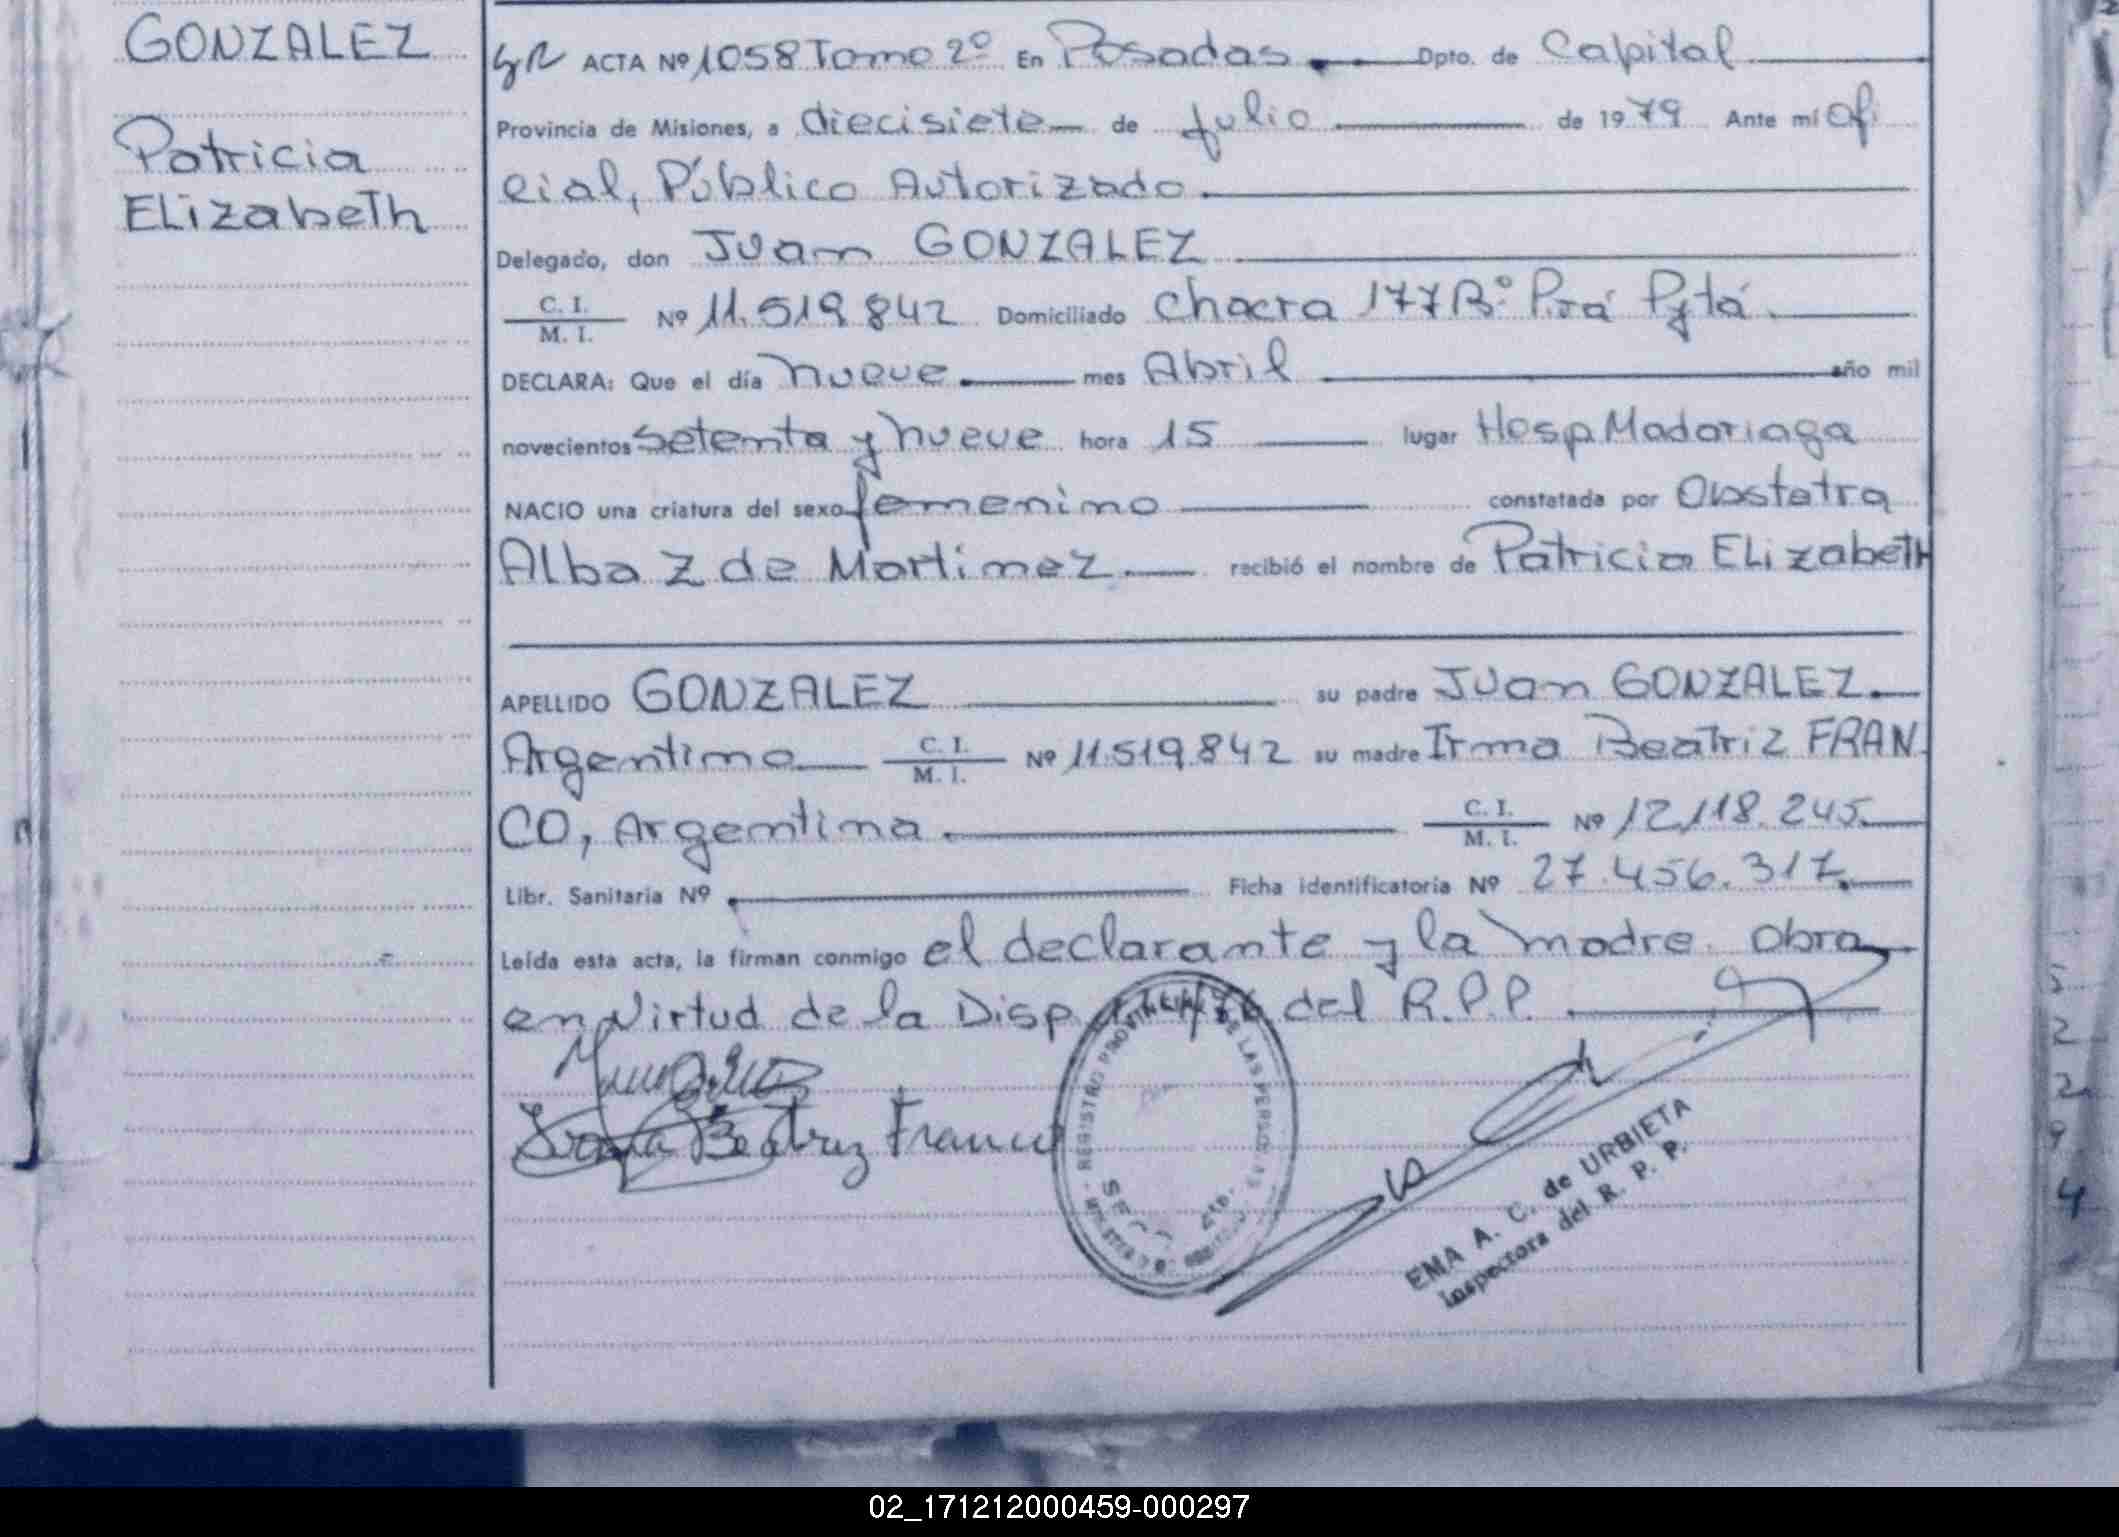 GONZALEZ
Patricia
ELizabeTh
ACTA Nº 1058 Tomo 2º En Posadas Dpto. de Capital
Provincia de Misiones, a diecisiete de Julio de 1979 Ante mí Ofi
cial, Público Autorizado
Delegado, don Juan GONZALEZ
C. I.
M. I.
Nº 11.519.842 Domiciliado Chacra 177 Bº Pirá Pytá.
DECLARA: Que el día nueve mes Abril año mil
novecientos setenta y nueve hora 15 lugar Hosp Madariaga
NACIO una criatura del sexo femenino constatada por Obstetra
Alba Z de Martinez recibió el nombre de Patricia ELizabeth
APELLIDO GONZALEZ su padre Juan GONZALEZ.
Argentino C. I.
M. I.
Nº 11.519.842 su madre Irma Beatriz FRAN
CO, Argentina. C. I.
M. I.
Nº 12.118.245.
Libr. Sanitaria Nº Ficha identificatoria Nº 27.456.317.
Leída esta acta, la firman conmigo el declarante y la madre. Obra
en Virtud de la Disp. del R.P.P.
Irma Beatriz Franco
REGISTRO PROVINCIAL DE LAS PERSONAS
EMA A. C. de URBIETA
Inspectora del R. P. P.
02_171212000459-000297